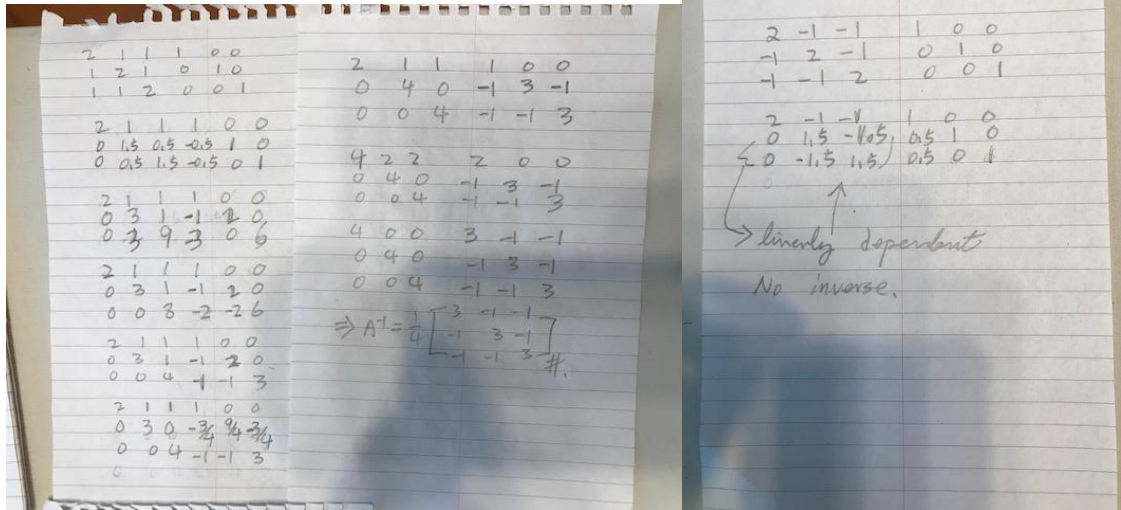 2 1 1 1 0 0
1 2 1 0 1 0
1 1 2 0 0 1
2 1 1 1 0 0
0 1.5 0.5 -0.5 1 0
0 0.5 1.5 -0.5 0 1
2 1 1 1 0 0
0 3 1 -1 2 0
0 3 9 -3 0 6
2 1 1 1 0 0
0 3 1 -1 2 0
0 0 8 -2 -2 6
2 1 1 1 0 0
0 3 1 -1 2 0
0 0 4 -1 -1 3
2 1 1 1 0 0
0 3 0 -3/4 9/4 -3/4
0 0 4 -1 -1 3
0
2 1 1 1 0 0
0 4 0 -1 3 -1
0 0 4 -1 -1 3
4 2 2 2 0 0
0 4 0 -1 3 -1
0 0 4 -1 -1 3
4 0 0 3 -1 -1
0 4 0 -1 3 -1
0 0 4 -1 -1 3
⇒ A⁻¹ = 1/4 [3 -1 -1
-1 3 -1
-1 -1 3] #.
2 -1 -1 1 0 0
-1 2 -1 0 1 0
-1 -1 2 0 0 1
2 -1 -1 1 0 0
0 1.5 -1.5 0.5 1 0
0 -1.5 1.5 0.5 0 1
linearly dependent
No inverse.